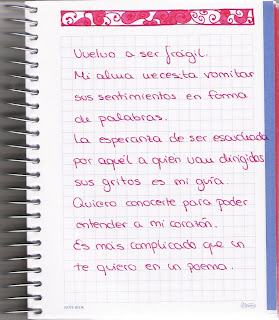 Vuelvo a ser frágil.
Mi alma necesita vomitar
sus sentimientos en forma
de palabras.
La esperanza de ser escuchada
por aquél a quien van dirigidos
sus gritos es mi guía.
Quiero conocerte para poder
entender a mi corazón.
Es más complicado que un
te quiero en un poema.